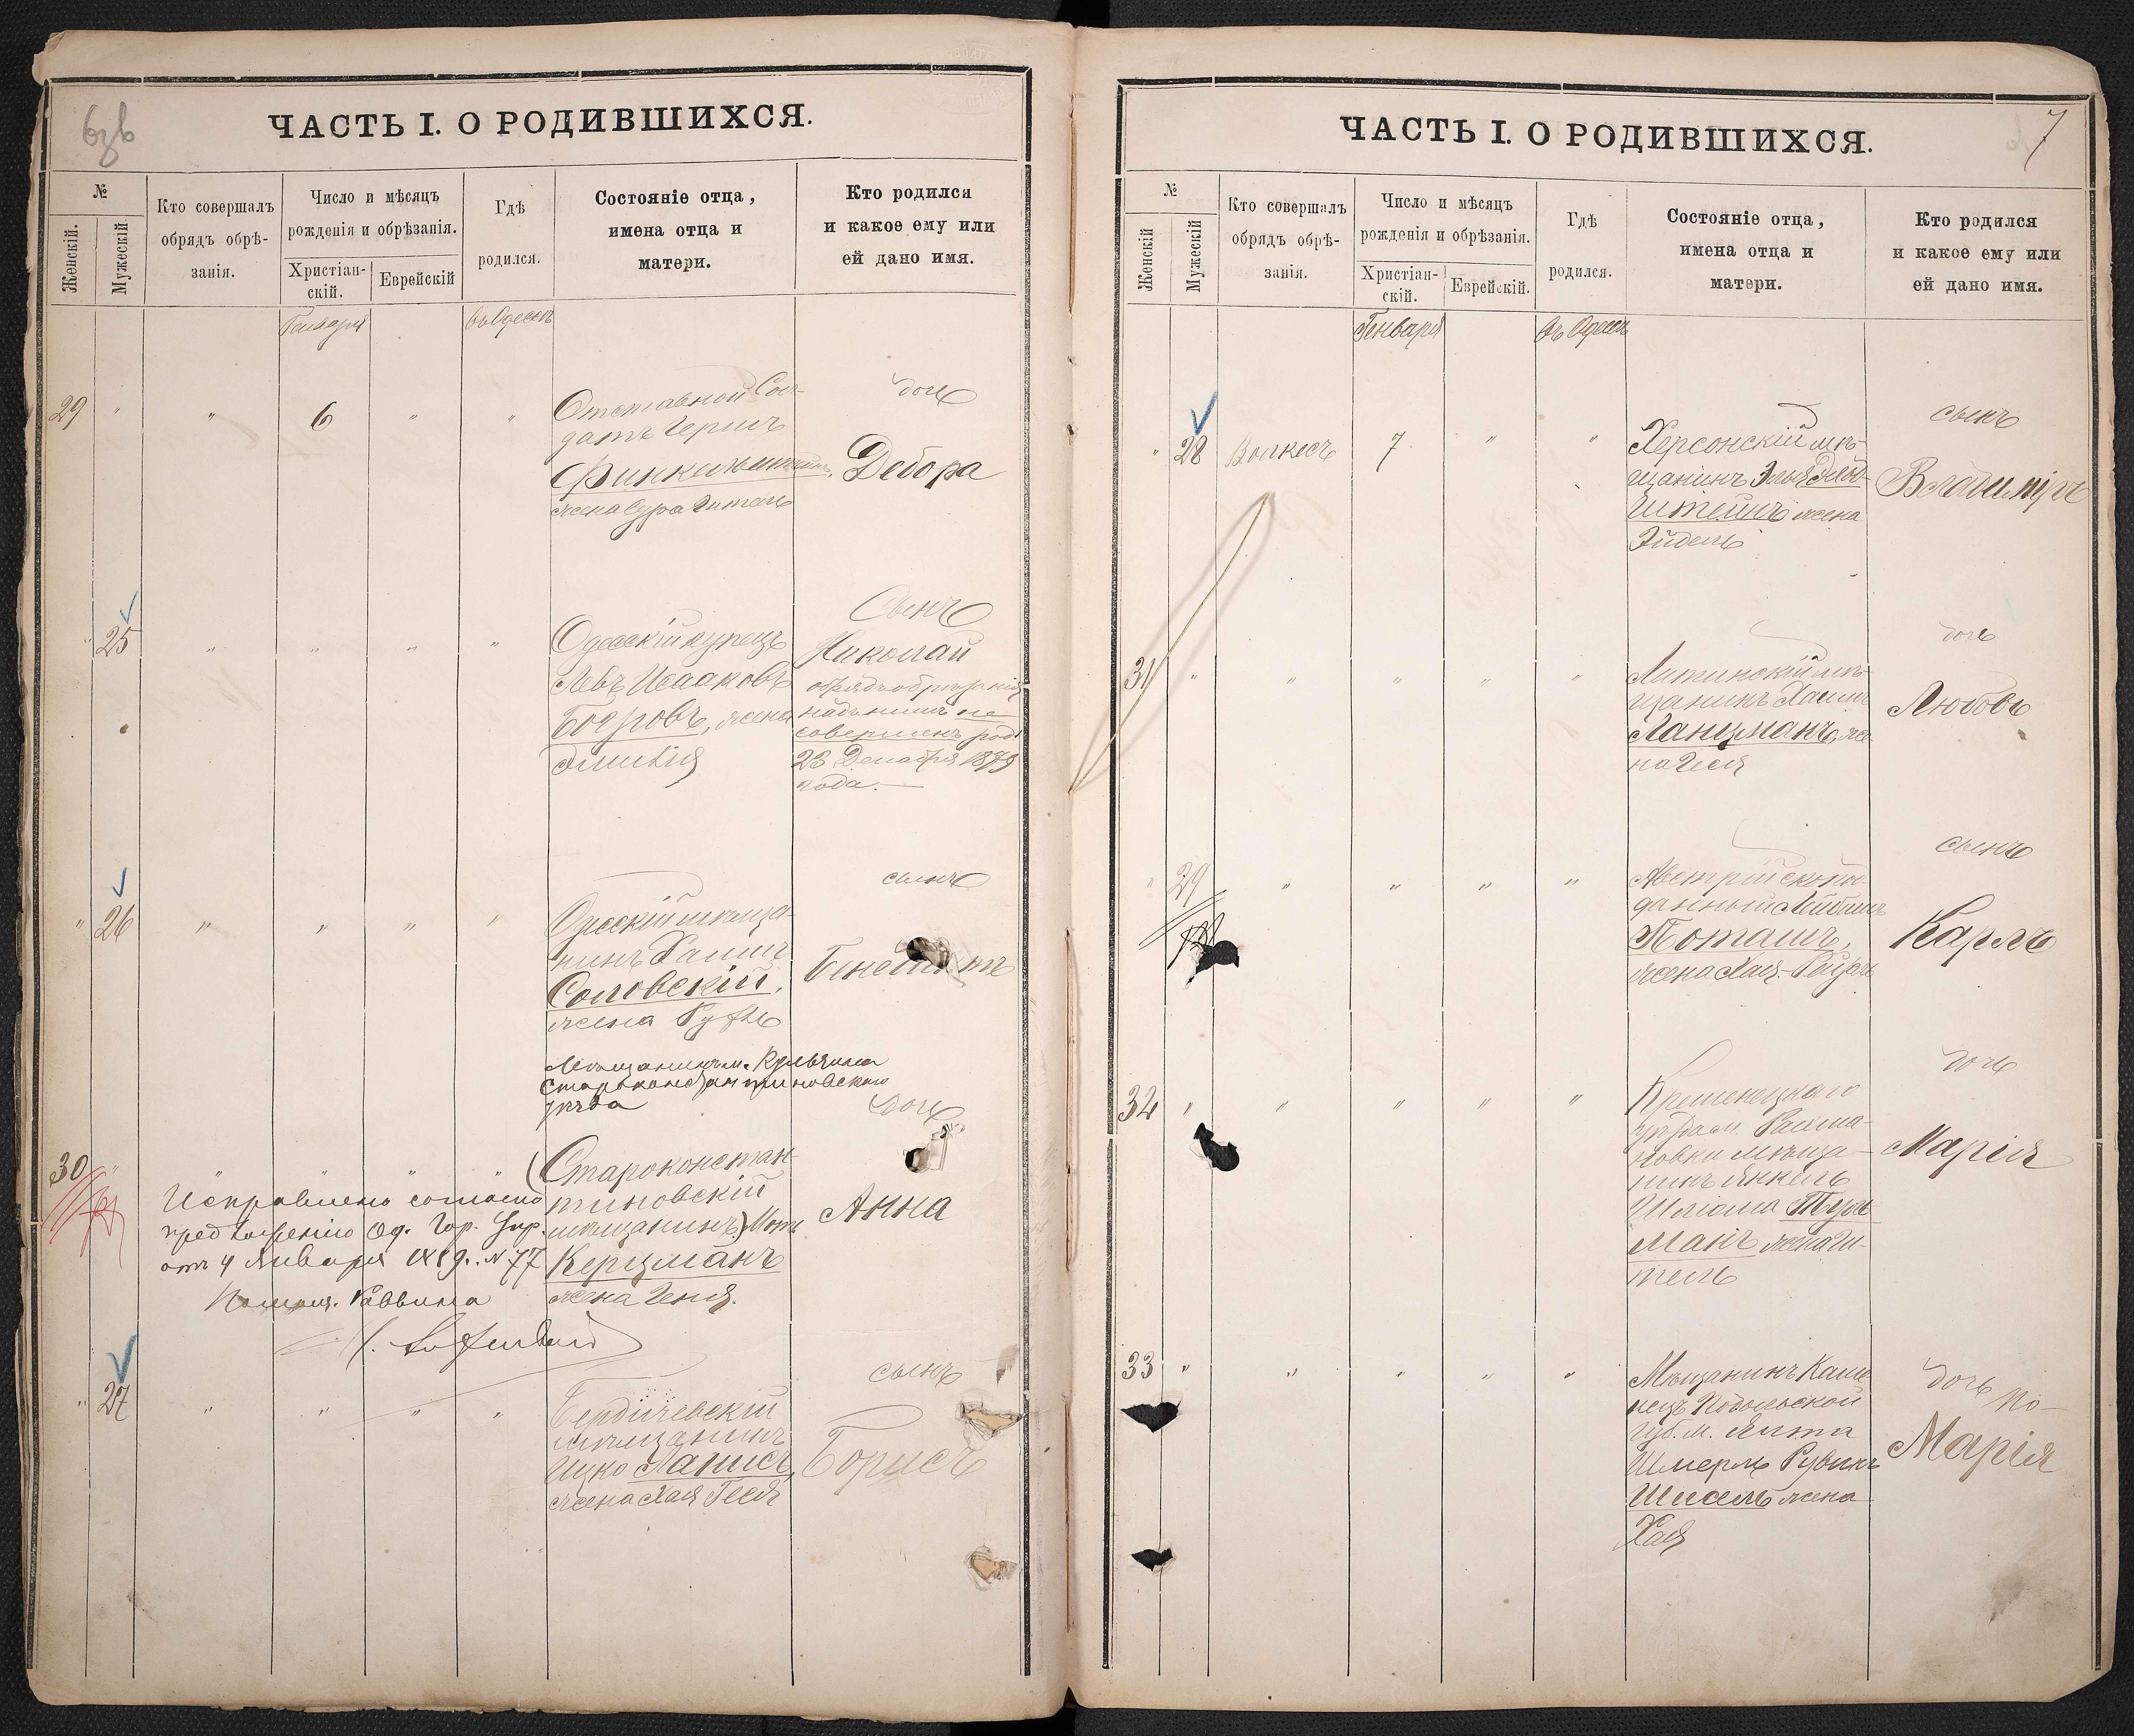 ЧАСТЬ I. О РОДИВШИХСЯ.
№
Женскій.
Мужескій
Кто совершалъ
обрядъ обрѣ-
занія.
Число и мѣсяцъ
рожденія и обрѣзанія.
Христіан-
скій.
Еврейскій
Гдѣ
родился.
Состояніе отца,
имена отца и
матери.
Кто родился
и какое ему или
ей дано имя.
Генваря
въ Одессѣ
29 " " 6 " "
Отставной Сол-
датъ Гершъ
Финкельштейнъ,
жена Сура Гитель
дочь
Дебора
" 25 " " " "
Одесскій купецъ
Левъ Исааковъ
Бояровъ, жена
Эмилія
Сынъ
Николай
обрядъ обрѣзанія
надъ нимъ не
совершенъ род.
23 Декабря 1879
года.
" 26 " " " "
Одесскій мѣща-
нинъ Хаимъ
Соловскій,
жена Руфь
сынъ
Бенедиктъ
Мѣщанинъ м. Кульчина
Староконстантиновскаго
уѣзда
30 " " " " "
(Староконстан-
тиновскій
мѣщанинъ) Мот
Керцманъ
жена Геня.
дочь
Анна
Исправлено согласно
предложенію Од. Гор. Упр.
отъ 4 Января 1889. N 77
Помощ. Раввина
" 27 " " " "
Бердичевскій
мѣщанинъ
Ицко Лаписъ,
жена Хая Гесся
сынъ
Борисъ
7
ЧАСТЬ I. О РОДИВШИХСЯ.
№
Женскій
Мужескій
Кто совершалъ
обрядъ обрѣ-
занія.
Число и мѣсяцъ
рожденія и обрѣзанія.
Христіан-
скій.
Еврейскій.
Гдѣ
родился.
Состояніе отца,
имена отца и
матери.
Кто родился
и какое ему или
ей дано имя.
Генваря
въ Одессѣ
" 28 Волкесъ 7 " "
Херсонскій мѣ-
щанинъ
штейнъ жена
Эйдель
сынъ
Владиміръ
31 " " " " "
Литинскій мѣ-
щанинъ Хаимъ
Ланцманъ, же-
на Геся
дочь
Любовь
" 29 " " " "
Австрійскоподданный
Поташъ,
жена Хая-Рейзя
сынъ
Карлъ
32 " " " " "
Кременецкаго
уѣзда м. Рахма-
новки мѣща-
нинъ Янкель
Шлiома Туль-
манъ жена Ги-
тель
дочь
Марія
33 " " " " "
Мѣщанинъ Каме-
нецъ Подольской
Губ. м. Ялта
Шмерль Рувинъ
Шисель жена
Хая
дочь
Марія